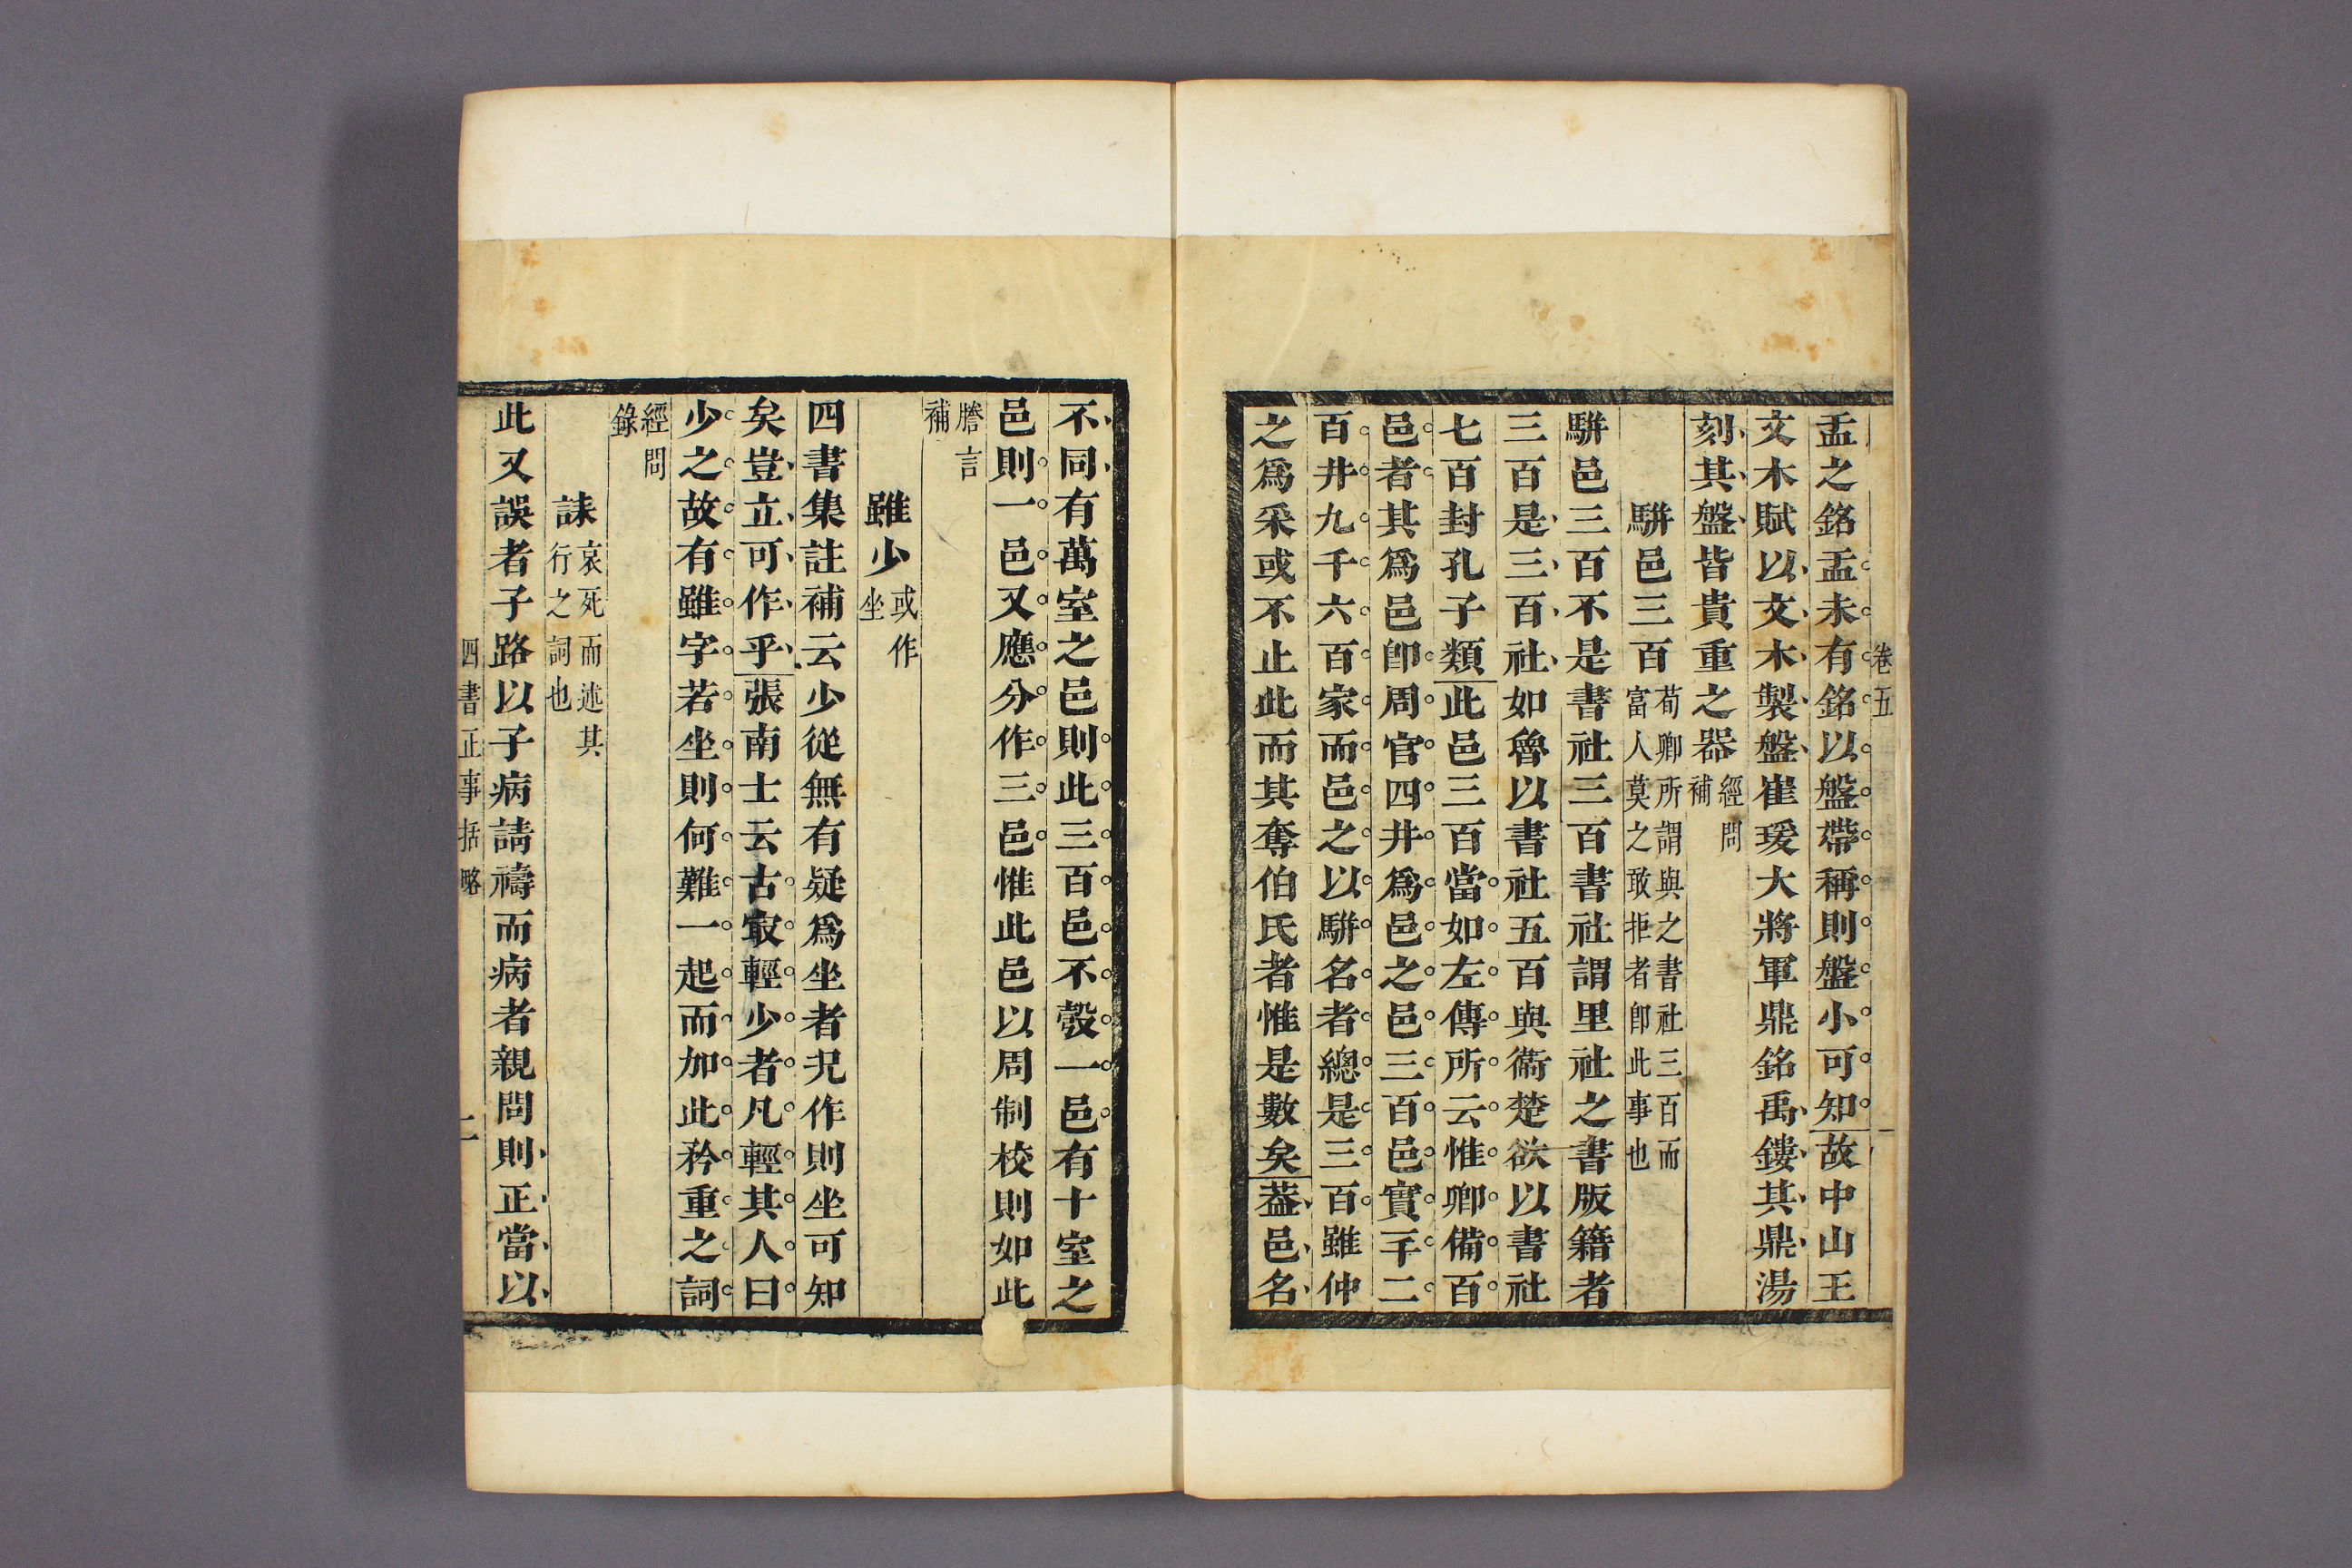 卷五
盂之銘盂未有銘以盤帶稱則盤小可知故中山王
文木賦以文木製盤崔瑗大將軍鼎銘禹鏤其鼎湯
刻其盤皆貴重之器經問補
騈邑三百荀卿所謂與之書社三百而富人莫之敢拒者卽此事也
騈邑三百不是書社三百書社謂里社之書版籍者
三百是三百社如魯以書社五百與衞楚欲以書社
七百封孔子類此邑三百當如左傳所云惟卿備百
邑者其爲邑卽周官四井爲邑之邑三百邑實一千二
百井九千六百家而邑之以騈名者總是三百雖仲
之爲采或不止此而其奪伯氏者惟是數矣葢邑名
不同有萬室之邑則此三百邑不彀一邑有十室之
邑則一邑又應分作三邑惟此邑以周制校則如此
賸言補
雖少或作坐
四書集註補云少從無有疑爲坐者況作則坐可知
矣豈立可作乎張南士云古㝡輕少者凡輕其人曰
少之故有雖字若坐則何難一起而加此矜重之詞
經問錄
誄哀死而述其行之詞也
此又誤者子路以子病請禱而病者親問則正當以
四書正事括略 二